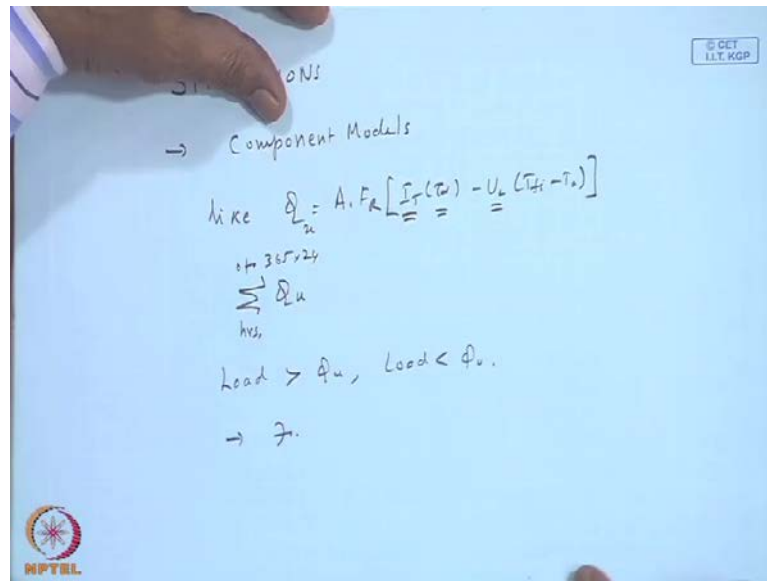 © CET
I.I.T. KGP
ONS
→ Component Models
like Qu = Ac FR [IT (τα) - UL (Tfi - Ta)]
0 to 365×24
Σ Qu
hrs,
Load > Qu, Load < Qu.
→ F.
NPTEL